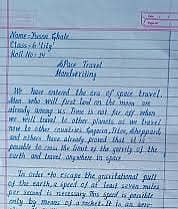 Name - Jwann Ghale
Class - 6 'Lily'
Roll No - 24
Space Travel
Handwriting
We have entered the era of space travel.
Men who will first land on the moon are
already among us. Time is not far off when
we will travel to other planets as we travel
now to other countries. Gagarin, Titov, Sheppard,
and others have already proved that it is
possible to cross the limit of the gravity of the
earth and travel anywhere in space
In order to escape the gravitational pull
of the earth, a speed of at least seven miles
per second is necessary. This speed is possible
only by means of a rocket. It is an